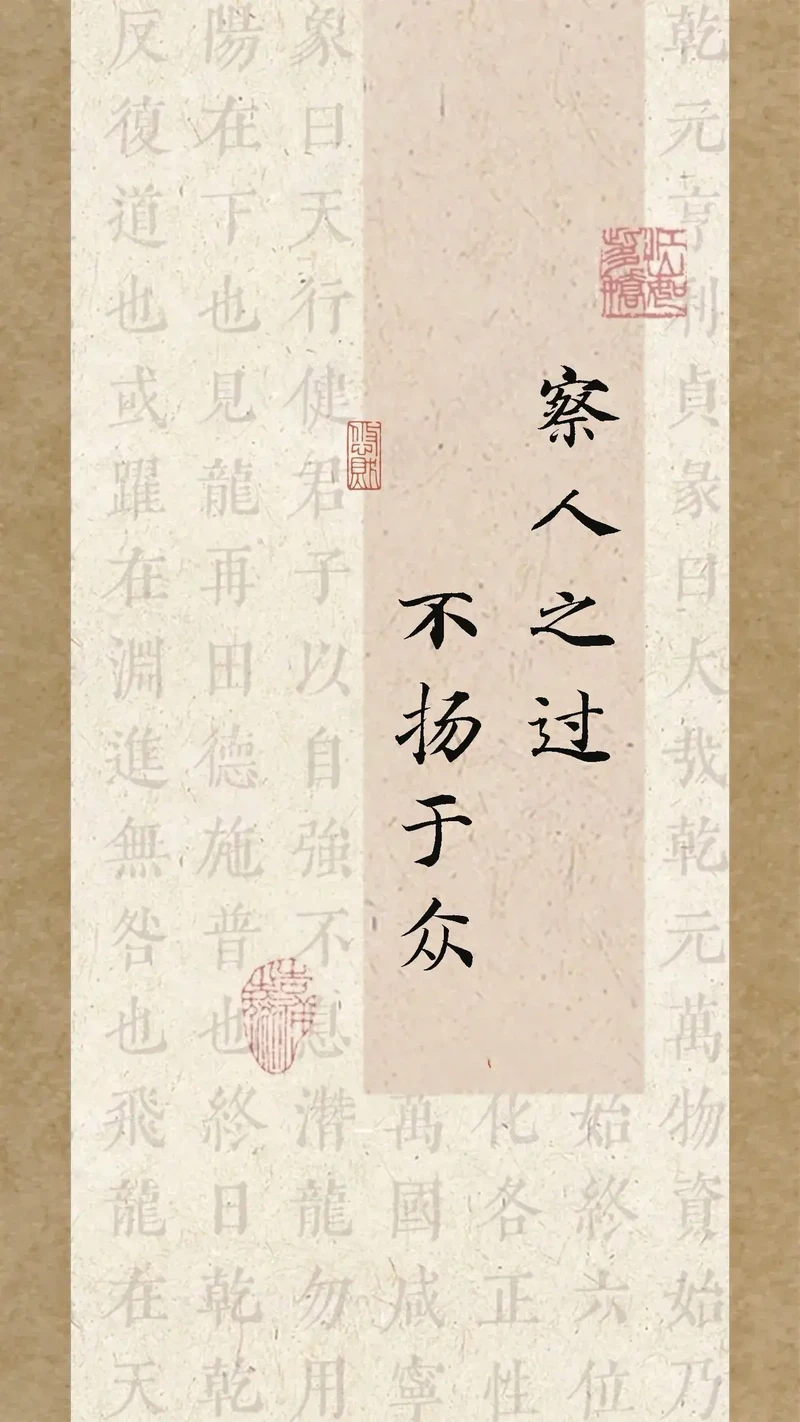 察人之过
不扬于众
乾元亨利貞彖曰大哉乾元萬物資始乃
始終六位
化各正性
萬國咸寧
象曰天行健君子以自強不息潛龍勿用
陽在下也見龍再田德施普也終日乾乾
反復道也或躍在淵進無咎也飛龍在天